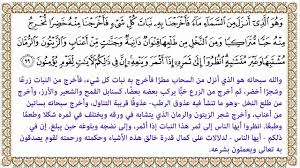 وَهُوَ الَّذِي أَنزَلَ مِنَ السَّمَاءِ مَاءً فَأَخْرَجْنَا بِهِ نَبَاتَ كُلِّ شَيْءٍ فَأَخْرَجْنَا مِنْهُ خَضِرًا نُّخْرِجُ
مِنْهُ حَبًّا مُّتَرَاكِبًا وَمِنَ النَّخْلِ مِن طَلْعِهَا قِنْوَانٌ دَانِيَةٌ وَجَنَّاتٍ مِّنْ أَعْنَابٍ وَالزَّيْتُونَ وَالرُّمَّانَ
مُشْتَبِهًا وَغَيْرَ مُتَشَابِهٍ انظُرُوا إِلَىٰ ثَمَرِهِ إِذَا أَثْمَرَ وَيَنْعِهِ إِنَّ فِي ذَٰلِكُمْ لَآيَاتٍ لِّقَوْمٍ يُؤْمِنُونَ ٩٩
والله سبحانه هو الذي أنزل من السحاب مطرًا فأخرج به نبات كل شيء، فأخرج من النبات زرعًا
وشجرًا أخضر، ثم أخرج من الزرع حَبًّا يركب بعضه بعضًا، كسنابل القمح والشعير والأرز، وأخرج
من طلع النخل -وهو ما تنشأ فيه عذوق الرطب- عذوقًا قريبة التناول، وأخرج سبحانه بساتين
من أعناب، وأخرج شجر الزيتون والرمان الذي يتشابه في ورقه ويختلف في ثمره شكلا وطعمًا
وطبعًا. انظروا أيها الناس إلى ثمر هذا النبات إذا أثمر، وإلى نضجه وبلوغه حين يبلغ. إن في
ذلكم - أيها الناس - لدلالات على كمال قدرة خالق هذه الأشياء وحكمته ورحمته لقوم يصدقون
به تعالى ويعملون بشرعه.